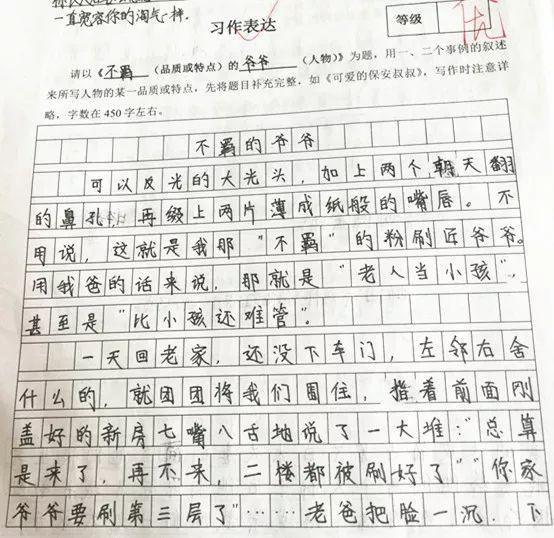 一直宽容你的淘气一样.
习作表达
等级
优
请以《不羁(品质或特点)的爷爷(人物)》为题,用一、二个事例的叙述
来所写人物的某一品质或特点,先将题目补充完整,如《可爱的保安叔叔》,写作时注意详
略,字数在450字左右。
不羁的爷爷
可以反光的大光头,加上两个朝天翻
的鼻孔,再缀上两片薄成纸般的嘴唇。不
用说,这就是我那“不羁”的粉刷匠爷爷。
用我爸的话来说,那就是“老人当小孩”,
甚至是“比小孩还难管”。
一天回老家,还没下车门,左邻右舍
什么的,就团团将我们围住,指着前面刚
盖好的新房七嘴八舌地说了一大堆:“总算
是来了,再不来,二楼都被刷好了”“你家
爷爷要刷第三层了”……老爸把脸一沉.下